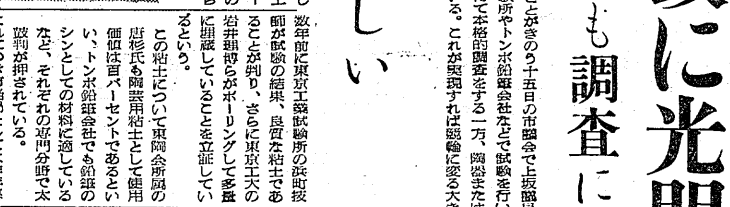 に光明
も調査に
ことがきのう十五日の市議会で上坂議員
所やトンボ鉛筆会社などで試験を行い
て本格的調査をする一方、陶器または
る。これが実現すれば競輪に変る大き
しい
数年前に東京工業試験所の浜町技
師が試験の結果、良質な粘土であ
ることが判り、さらに東京工大の
岩井理博らがボーリングして多量
に埋蔵していることを立証してい
るという。
この粘土について東陶会所属の
唐杉氏も陶芸用粘土として使用
価値は百パーセントであるとい
い、トンボ鉛筆会社でも鉛筆の
シンとしての材料に適している
など、それぞれの専門分野で太
鼓判が押されている。